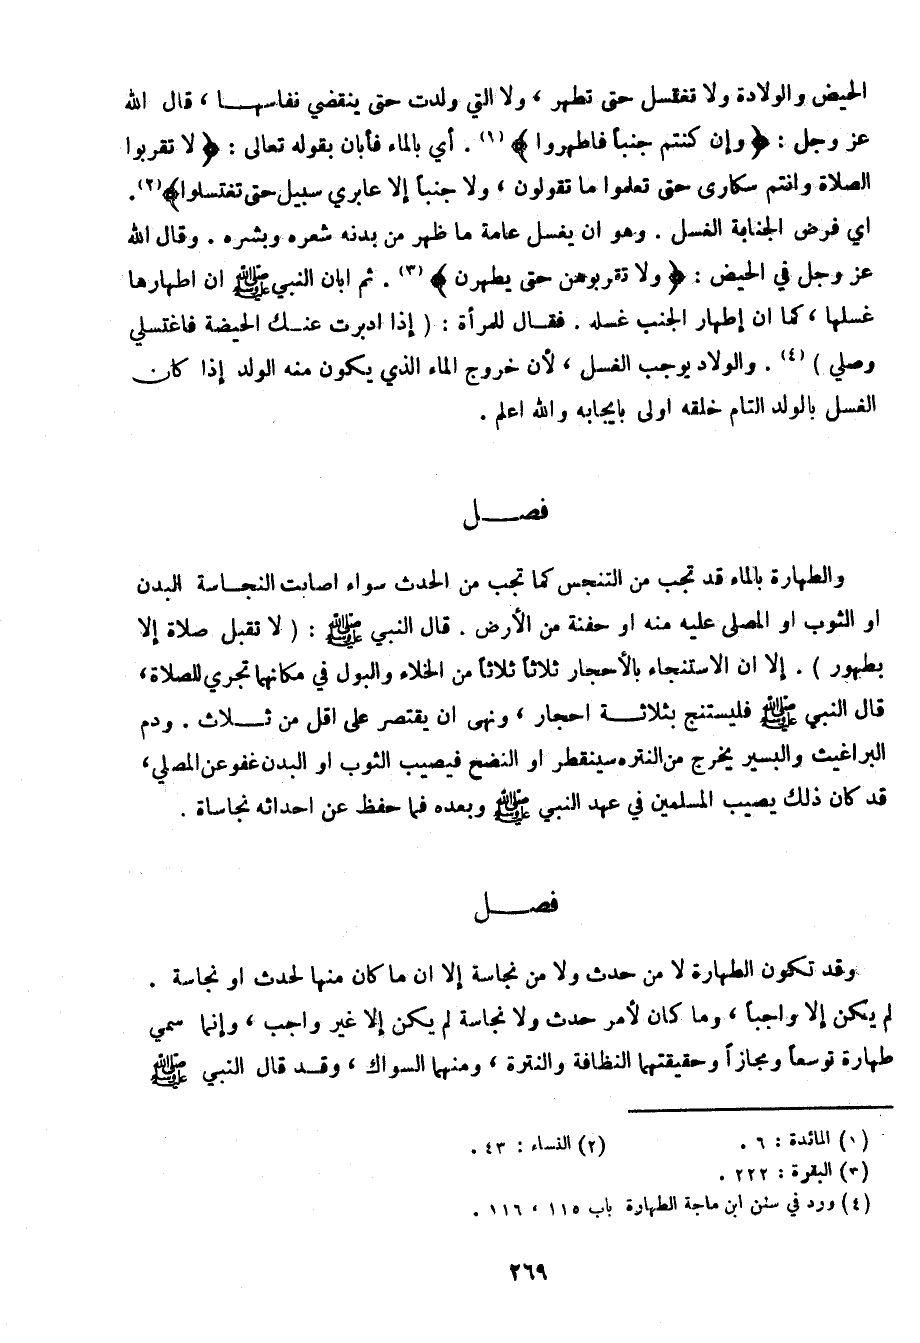 الحيض والولادة ولا تغتسل حتى تطهر ، ولا التي ولدت حتى ينقضي نفاسهـــا ، قال الله
عز وجل : ﴿ وإن كنتم جنباً فاطهروا ﴾ (١) . أي بالماء فأبان بقوله تعالى : ﴿ لا تقربوا
الصلاة وانتم سكارى حتى تعلموا ما تقولون ، ولا جنباً إلا عابري سبيل حتى تغتسلوا ﴾ (٢) .
اي فرض الجنابة الغسل . وهو ان يغسل عامة ما ظهر من بدنه شعره وبشره . وقال الله
عز وجل في الحيض : ﴿ ولا تقربوهن حتى يطهرن ﴾ (٣) . ثم ابان النبي ﷺ ان اطهارها
غسلها ، كما ان إطهار الجنب غسله . فقــال للمرأة : ( إذا ادبرت عنــك الحيضة فاغتسلي
وصلي ) (٤) . والولاد يوجب الغسل ، لأن خروج الماء الذي يكون منه الولد إذا كان
الغسل بالولد التام خلقه اولى بايجابه والله اعلم .
فصــــل
والطهارة بالماء قد تجب من التنجس كما تجب من الحدث سواء اصابت النجــاسة البدن
او الثوب او المصلى عليه منه او حفنة من الأرض . قال النبي ﷺ : ( لا تقبل صلاة إلا
بطهور ) . إلا ان الاستنجاء بالأحجار ثلاثاً ثلاثاً من الخلاء والبول في مكانها تجري للصلاة ،
قال النبي ﷺ فليستنج بثلاثــة احجار ، ونهى ان يقتصر على اقل من ثــلاث . ودم
البراغيث والبسير يخرج من النتره سينقطر او النضع فيصيب الثوب او البدن غفو عن المصلي ،
قد كان ذلك يصيب المسلمين في عهد النبي ﷺ وبعده فما حفظ عن احداثه نجاساة .
فصــــل
وقد تكون الطهارة لا من حدث ولا من نجاسة إلا ان ما كان منها لحدث او نجاسة .
لم يكن إلا واجباً ، وما كان لأمر حدث ولا نجاسة لم يكن إلا غير واجب ، وإنما سمي
طهارة توسعاً ومجازاً وحقيقتها النظافة والنترة ، ومنها السواك ، وقــد قال النبي ﷺ
(١) المائدة : ٦ . (٢) النساء : ٤٣ .
(٣) البقرة : ٢٢٢ .
(٤) ورد في سنن ابن ماجة الطهارة باب ١١٥ ، ١١٦ .
٢٦٩